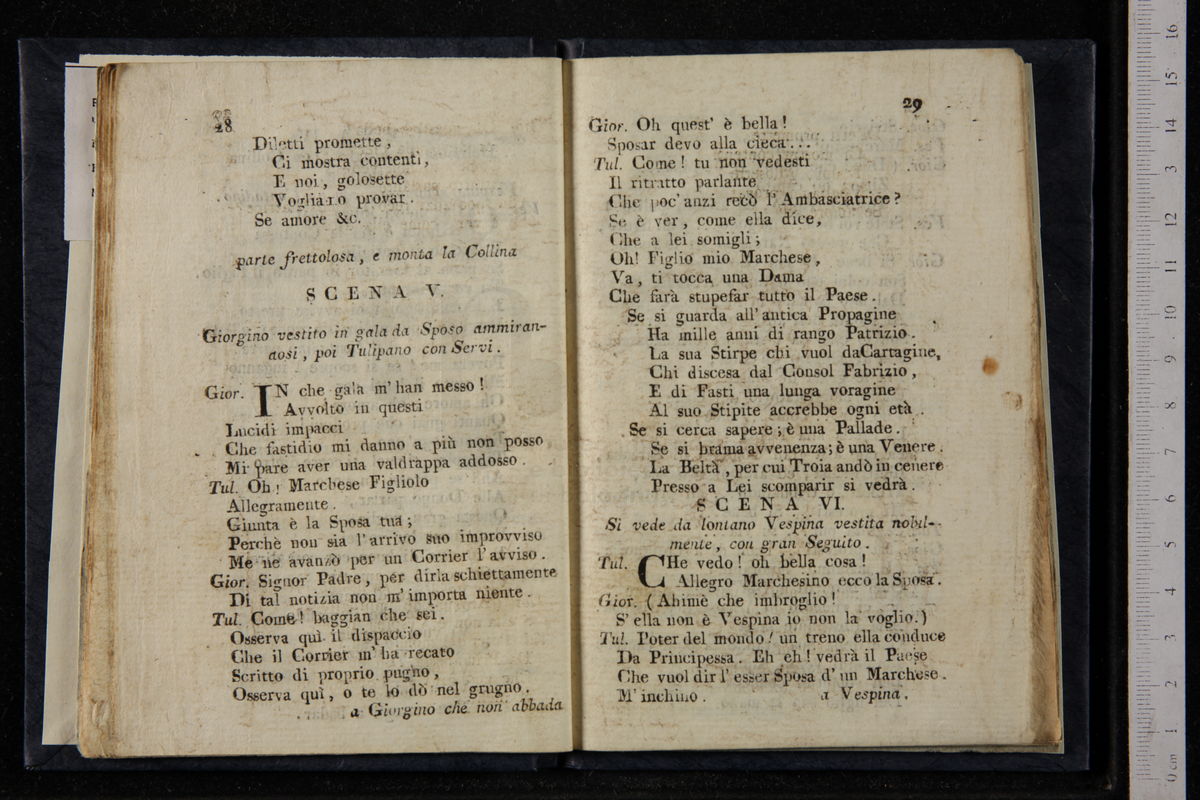 28
Diletti promette,
Ci mostra contenti,
E noi, golosette
Vogliamo provar.
Se amore &c.
parte frettolosa, e monta la Collina
SCENA V.
Giorgino vestito in gala da Sposo ammiran-
dosi, poi Tulipano con Servi.
Gior. IN che gala m'han messo!
Avvolto in questi
Lucidi impacci
Che fastidio mi danno a più non posso
Mi pare aver una valdrappa addosso.
Tul. Oh! Marchese Figliolo
Allegramente.
Giunta è la Sposa tua;
Perchè non sia l'arrivo suo improvviso
Me ne avanzò per un Corrier l'avviso.
Gior. Signor Padre, per dirla schiettamente
Di tal notizia non m'importa niente.
Tul. Come! baggian che sei.
Osserva quì il dispaccio
Che il Corrier m'ha recato
Scritto di proprio pugno,
Osserva quì, o te lo dò nel grugno.
a Giorgino che non abbada
29
Gior. Oh quest' è bella!
Sposar devo alla cieca...
Tul. Come! tu non vedesti
Il ritratto parlante
Che poc'anzi recò l'Ambasciatrice?
Se è ver, come ella dice,
Che a lei somigli;
Oh! Figlio mio Marchese,
Va, ti tocca una Dama
Che farà stupefar tutto il Paese.
Se si guarda all'antica Propagine
Ha mille anni di rango Patrizio.
La sua Stirpe chi vuol daCartagine,
Chi discesa dal Consol Fabrizio,
E di Fasti una lunga voragine
Al suo Stipite accrebbe ogni età.
Se si cerca sapere; è una Pallade.
Se si brama avvenenza; è una Venere.
La Beltà, per cui Troia andò in cenere
Presso a Lei scomparir si vedrà.
SCENA VI.
Si vede da lontano Vespina vestita nobil-
mente, con gran Seguito.
Tul. CHe vedo! oh bella cosa!
Allegro Marchesino ecco la Sposa.
Gior. (Ahimè che imbroglio!
S'ella non è Vespina io non la voglio.)
Tul. Poter del mondo! un treno ella conduce
Da Principessa. Eh eh! vedrà il Paese
Che vuol dir l'esser Sposa d'un Marchese.
M'inchino. a Vespina.
0 cm 1 2 3 4 5 6 7 8 9 10 11 12 13 14 15 16